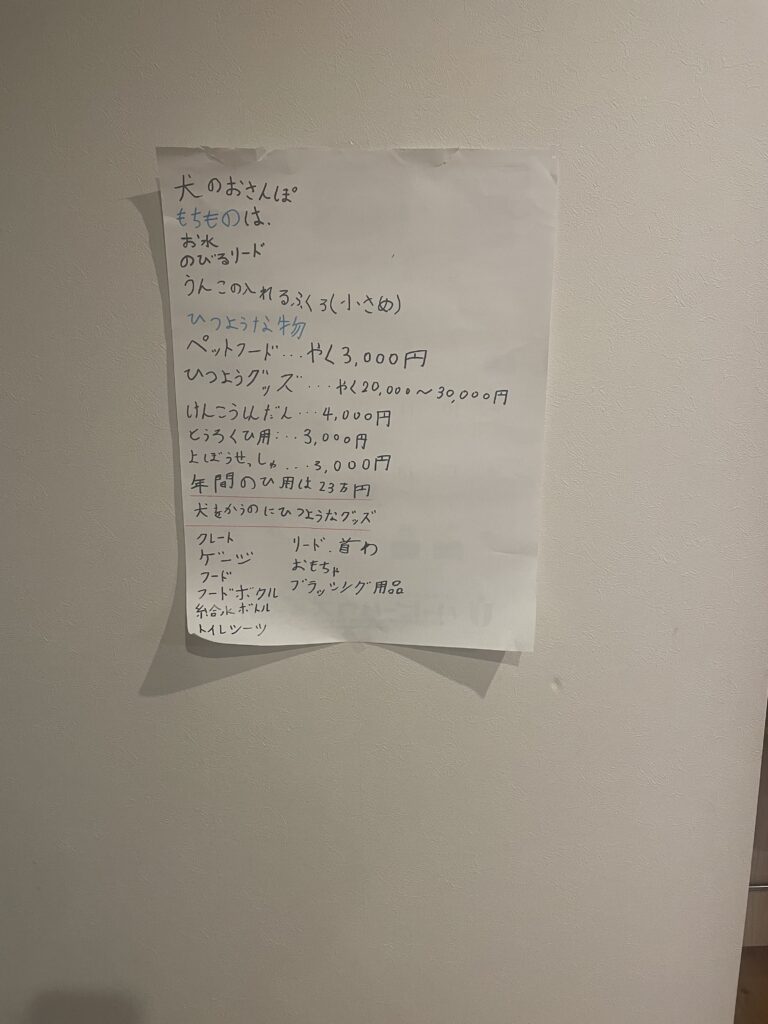 犬のおさんぽ
もちものは、
お水
のびるリード
うんこの入れるふくろ(小さめ)
ひつような物
ペットフード...やく3,000円
ひつようグッズ...やく20,000〜30,000円
けんこうしんだん...4,000円
とうろくひ用...3,000円
よぼうせっしゅ...3,000円
年間のひ用は23万円
犬をかうのにひつようなグッズ
クレート
ゲージ
フード
フードボクル
給水ボトル
トイレシーツ
リード.首わ
おもちゃ
ブラッシング用品